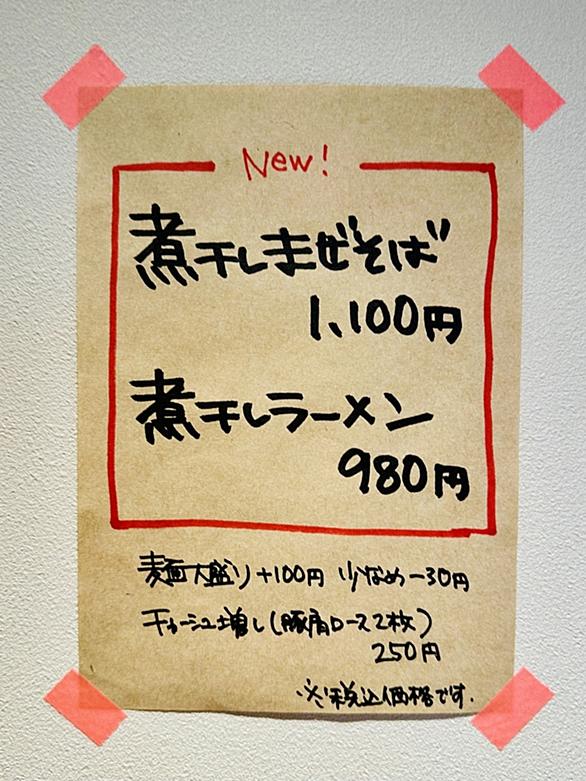 New!
煮干しまぜそば
1,100円
煮干しラーメン
980円
麺大盛り+100円 少なめー30円
チャーシュー増し(豚肩ロース2枚)
250円
※税込価格です.